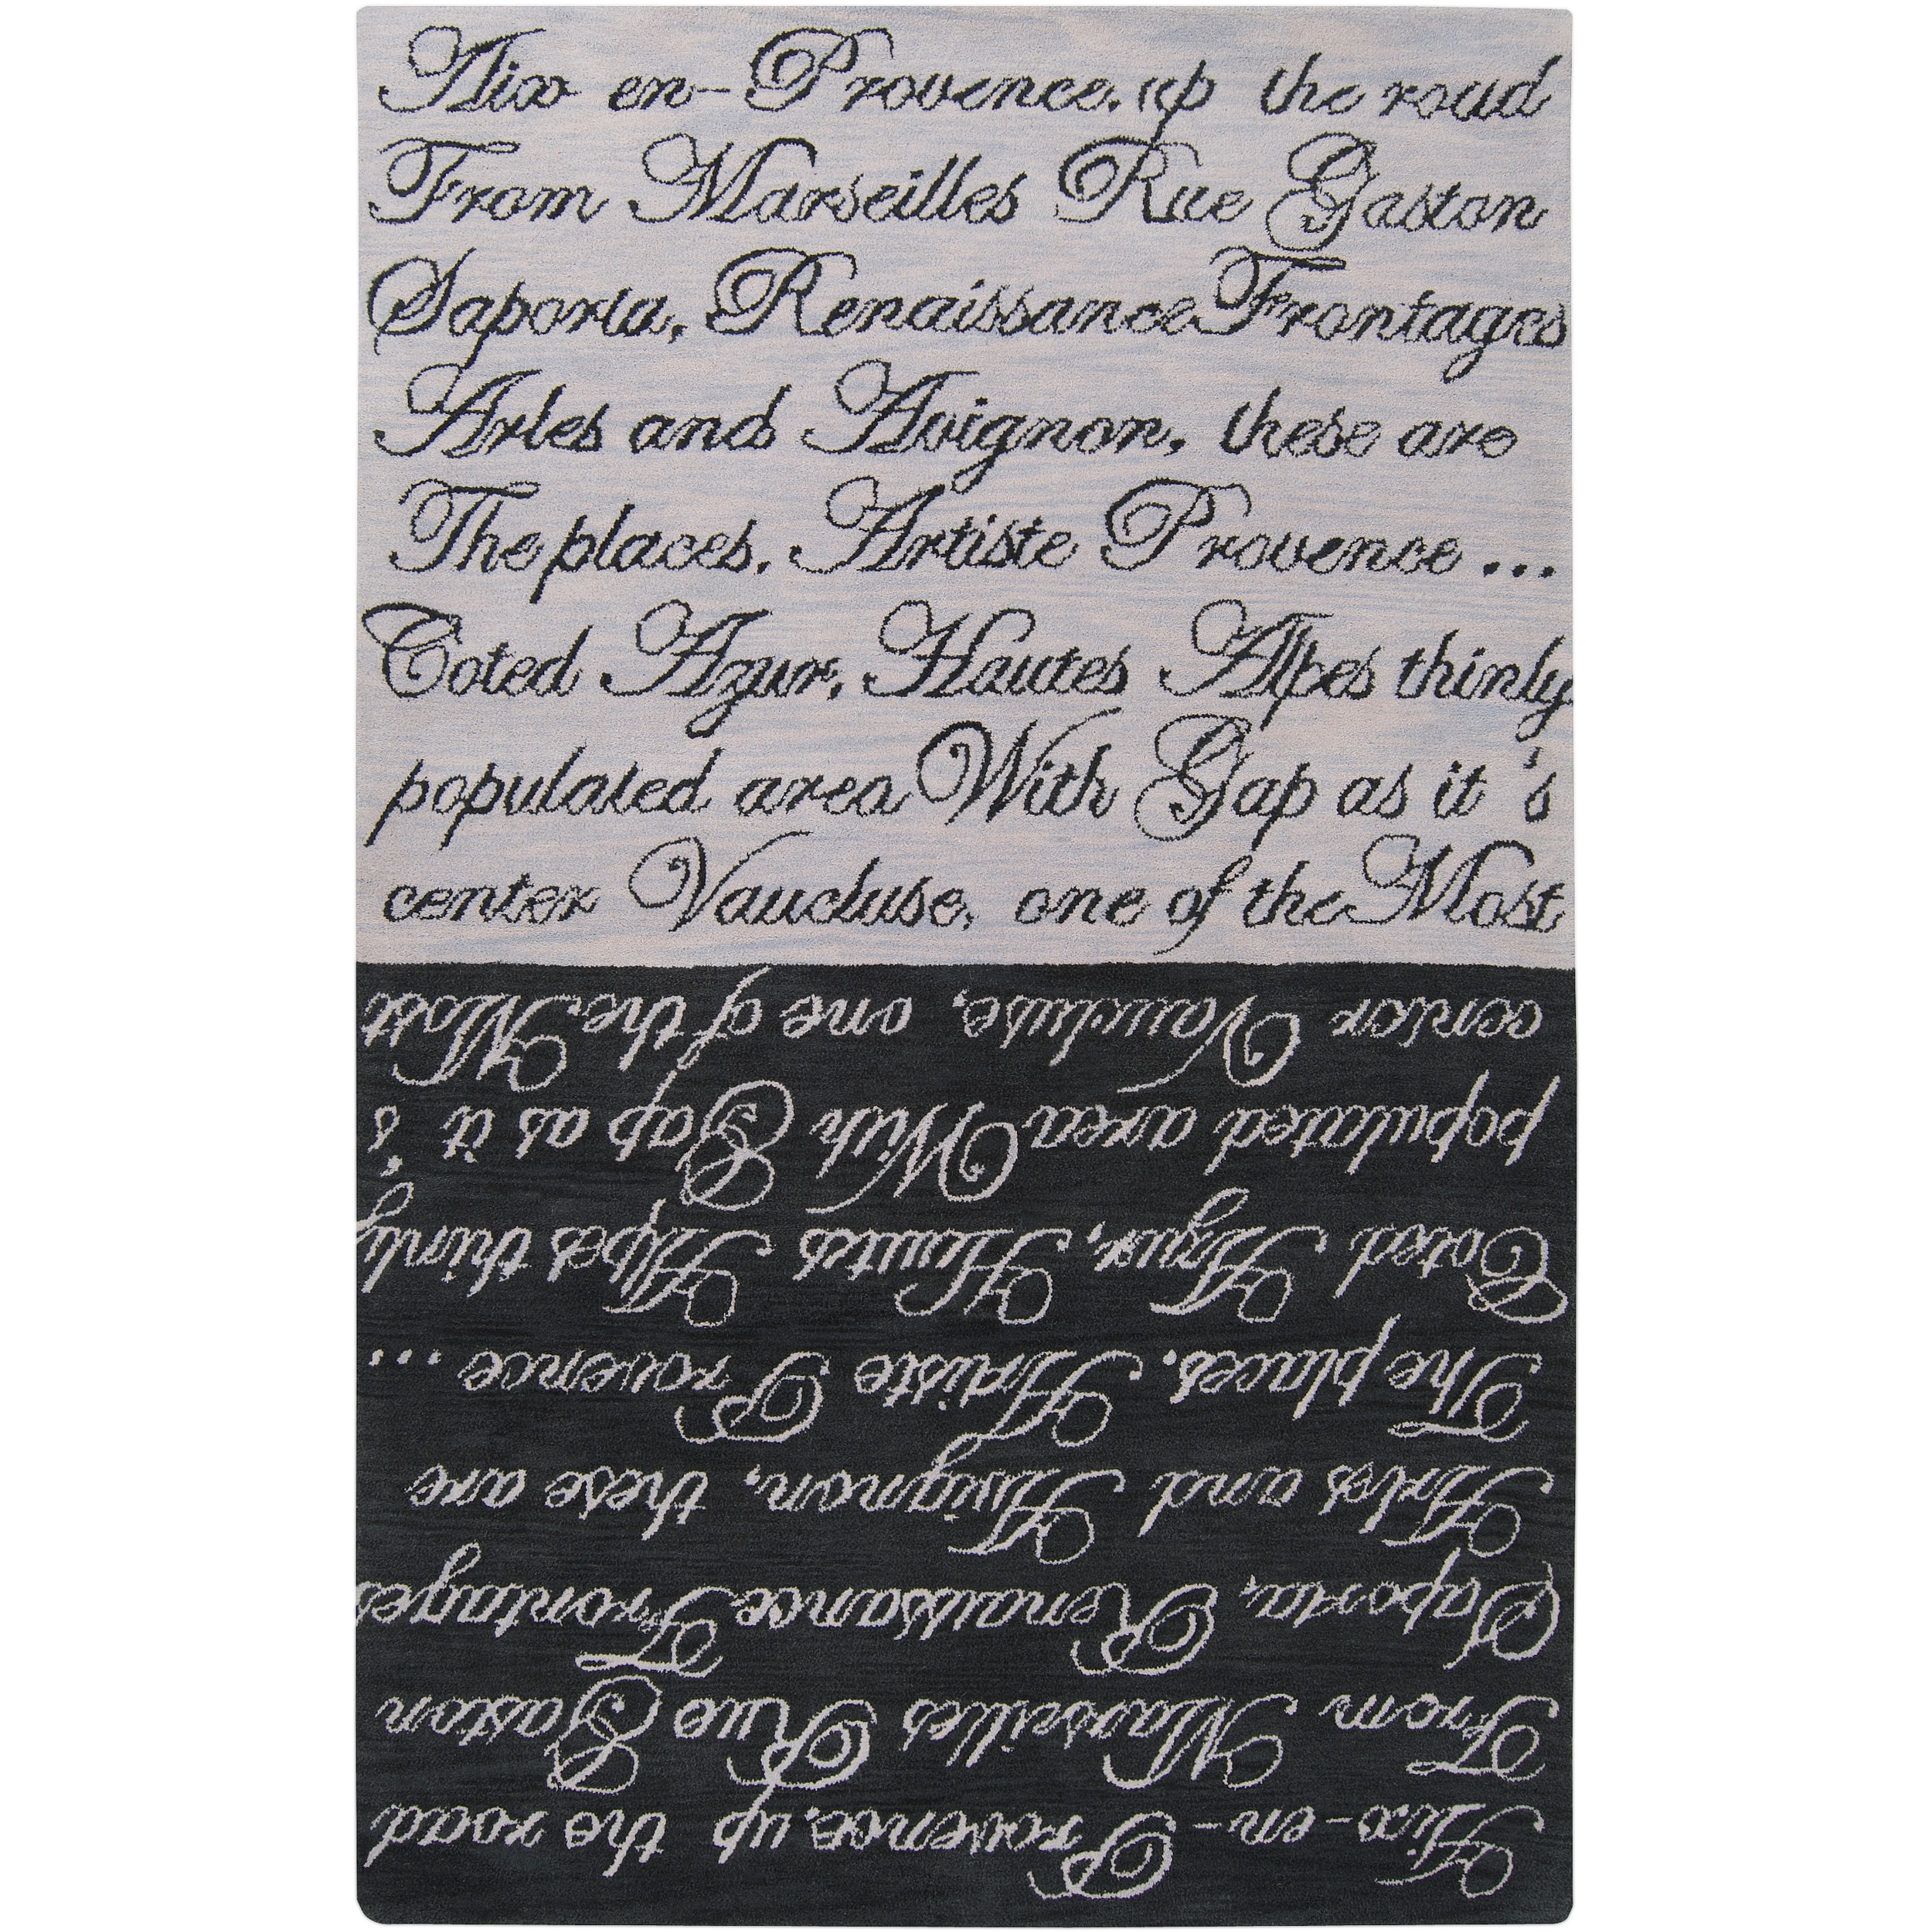 Aix en-Provence, up the road
From Marseilles Rue Gaston
Saporta, Renaissance Frontages
Arles and Avignon, these are
The places. Artiste Provence ...
Coted Azur, Hautes Alpes thinly
populated area With Gap as it 's
center Vaucluse, one of the Most
Aix-en-Provence, up the road
From Marseilles Rue Gaston
Saporta, Renaissance Frontages
Arles and Avignon, these are
The places. Artiste Provence ...
Coted Azur, Hautes Alpes thinly
populated area With Gap as it 's
center Vaucluse, one of the Most